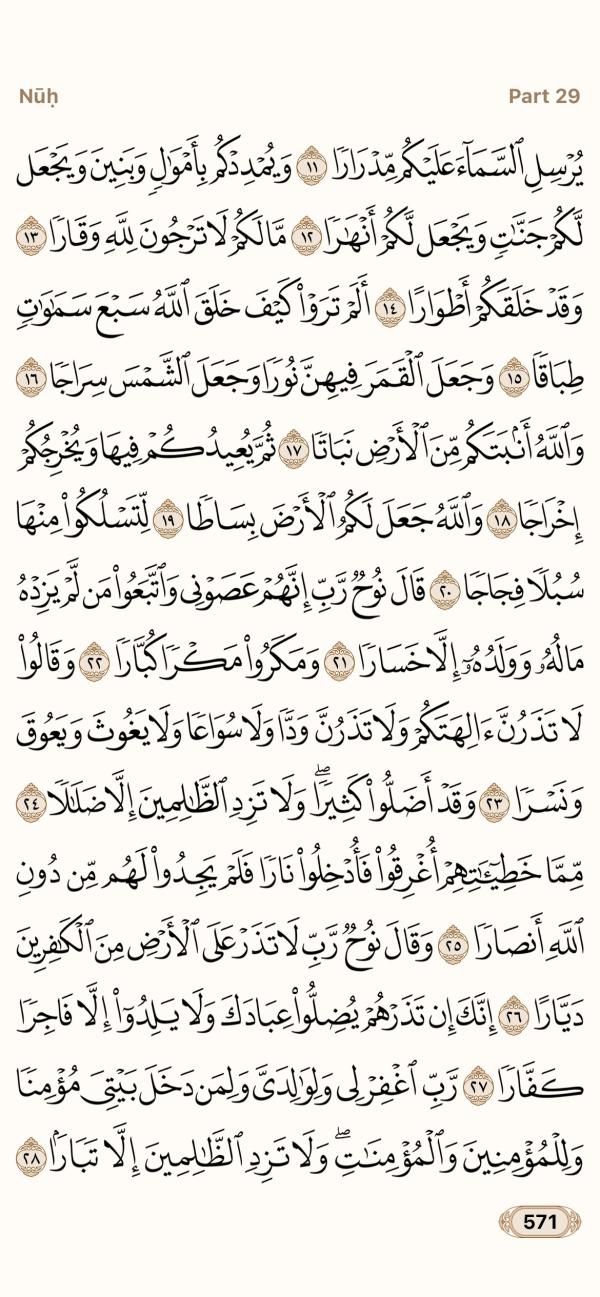 Nūḥ
Part 29
يُرْسِلِ ٱلسَّمَآءَ عَلَيْكُم مِّدْرَارًا ١١ وَيُمْدِدْكُم بِأَمْوَٰلٍ وَبَنِينَ وَيَجْعَل
لَّكُمْ جَنَّٰتٍ وَيَجْعَل لَّكُمْ أَنْهَٰرًا ١٢ مَّا لَكُمْ لَا تَرْجُونَ لِلَّهِ وَقَارًا ١٣
وَقَدْ خَلَقَكُمْ أَطْوَارًا ١٤ أَلَمْ تَرَوْا۟ كَيْفَ خَلَقَ ٱللَّهُ سَبْعَ سَمَٰوَٰتٍ
طِبَاقًا ١٥ وَجَعَلَ ٱلْقَمَرَ فِيهِنَّ نُورًا وَجَعَلَ ٱلشَّمْسَ سِرَاجًا ١٦
وَٱللَّهُ أَنۢبَتَكُم مِّنَ ٱلْأَرْضِ نَبَاتًا ١٧ ثُمَّ يُعِيدُكُمْ فِيهَا وَيُخْرِجُكُمْ
إِخْرَاجًا ١٨ وَٱللَّهُ جَعَلَ لَكُمُ ٱلْأَرْضَ بِسَاطًا ١٩ لِّتَسْلُكُوا۟ مِنْهَا
سُبُلًا فِجَاجًا ٢٠ قَالَ نُوحٌ رَّبِّ إِنَّهُمْ عَصَوْنِى وَٱتَّبَعُوا۟ مَن لَّمْ يَزِدْهُ
مَالُهُۥ وَوَلَدُهُۥٓ إِلَّا خَسَارًا ٢١ وَمَكَرُوا۟ مَكْرًا كُبَّارًا ٢٢ وَقَالُوا۟
لَا تَذَرُنَّ ءَالِهَتَكُمْ وَلَا تَذَرُنَّ وَدًّا وَلَا سُوَاعًا وَلَا يَغُوثَ وَيَعُوقَ
وَنَسْرًا ٢٣ وَقَدْ أَضَلُّوا۟ كَثِيرًا ۖ وَلَا تَزِدِ ٱلظَّٰلِمِينَ إِلَّا ضَلَٰلًا ٢٤
مِّمَّا خَطِيٓـَٰٔتِهِمْ أُغْرِقُوا۟ فَأُدْخِلُوا۟ نَارًا فَلَمْ يَجِدُوا۟ لَهُم مِّن دُونِ
ٱللَّهِ أَنصَارًا ٢٥ وَقَالَ نُوحٌ رَّبِّ لَا تَذَرْ عَلَى ٱلْأَرْضِ مِنَ ٱلْكَٰفِرِينَ
دَيَّارًا ٢٦ إِنَّكَ إِن تَذَرْهُمْ يُضِلُّوا۟ عِبَادَكَ وَلَا يَلِدُوٓا۟ إِلَّا فَاجِرًا
كَفَّارًا ٢٧ رَّبِّ ٱغْفِرْ لِى وَلِوَٰلِدَىَّ وَلِمَن دَخَلَ بَيْتِىَ مُؤْمِنًا
وَلِلْمُؤْمِنِينَ وَٱلْمُؤْمِنَٰتِ ۖ وَلَا تَزِدِ ٱلظَّٰلِمِينَ إِلَّا تَبَارًۢا ٢٨
571